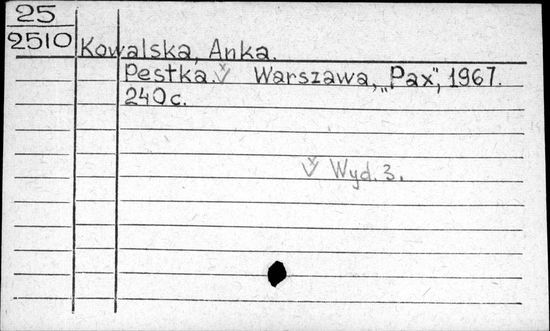 25
2510
Kowalska, Anka.
Pestka. Warszawa, „Pax”, 1967.
240 c.
Wyd. 3.